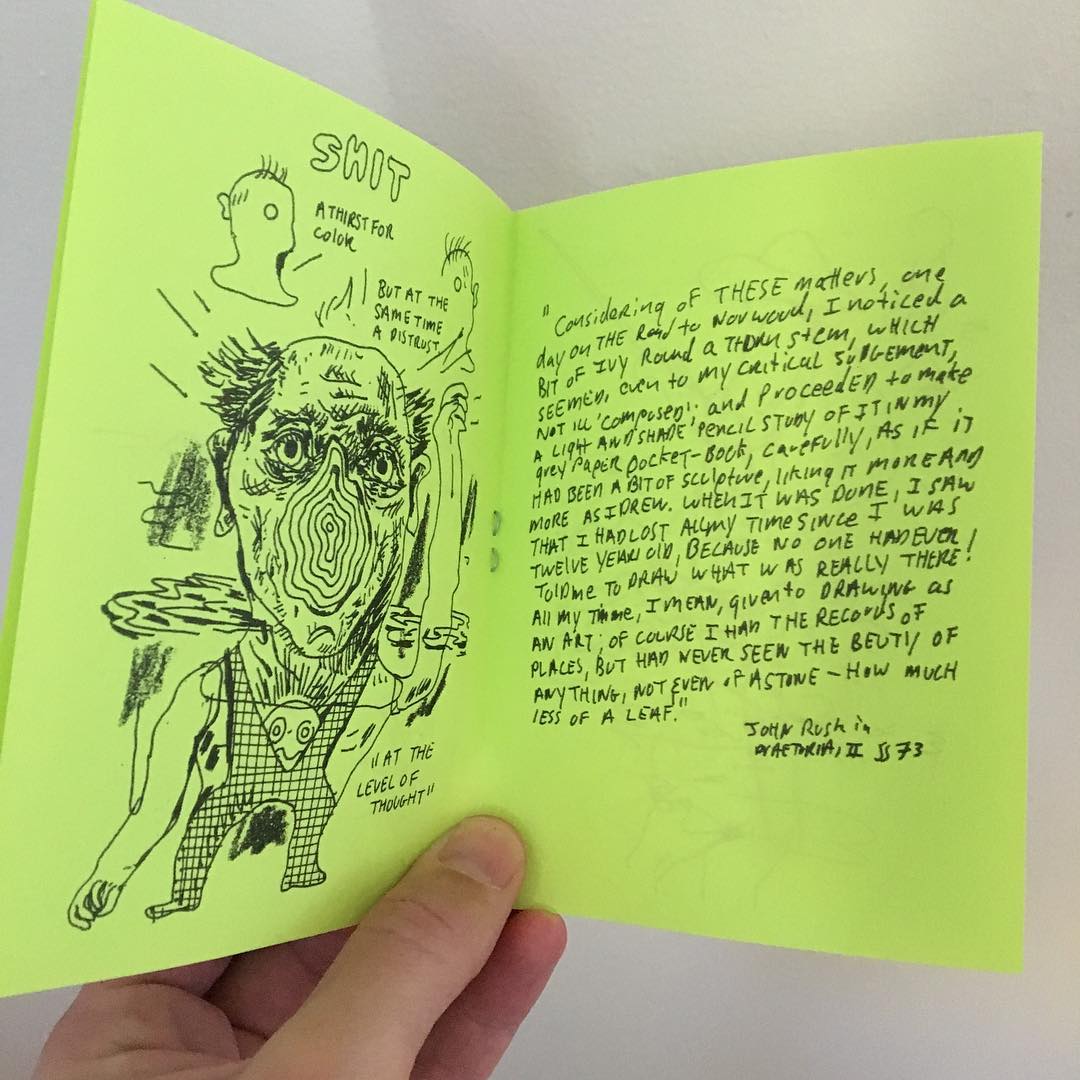 SHIT
A THIRST FOR
COLOR
BUT AT THE
SAME TIME
A DISTRUST
"AT THE
LEVEL OF
THOUGHT"
"Considering of THESE matters, one
day on THE Road to Norwood, I noticed a
BIT OF IVY Round a THORN stem, WHICH
SEEMED, even to my critical JUDGEMENT,
NOT ILL 'composed': and Proceeded to make
A LIGHT AND 'SHADE' PENCIL STUDY OF IT IN MY
grey PAPER POCKET-BOOK, carefully, AS IF IT
HAD BEEN A BIT OF sculpture, liking IT MORE AND
MORE AS I DREW. WHEN IT WAS DONE, I SAW
THAT I HAD LOST ALL my TIME SINCE I WAS
TWELVE YEARS OLD, BECAUSE NO ONE HAD EVER
TOLD me TO DRAW WHAT WAS REALLY THERE!
All my Time, I MEAN, given to DRAWING as
AN ART; OF COURSE I HAD THE RECORDS OF
PLACES, BUT HAD NEVER SEEN THE BEUTIY OF
ANYTHING, NOT EVEN OF A STONE – HOW MUCH
LESS OF A LEAF."
JOHN RUSKin
PRAETORIA, II §§ 73